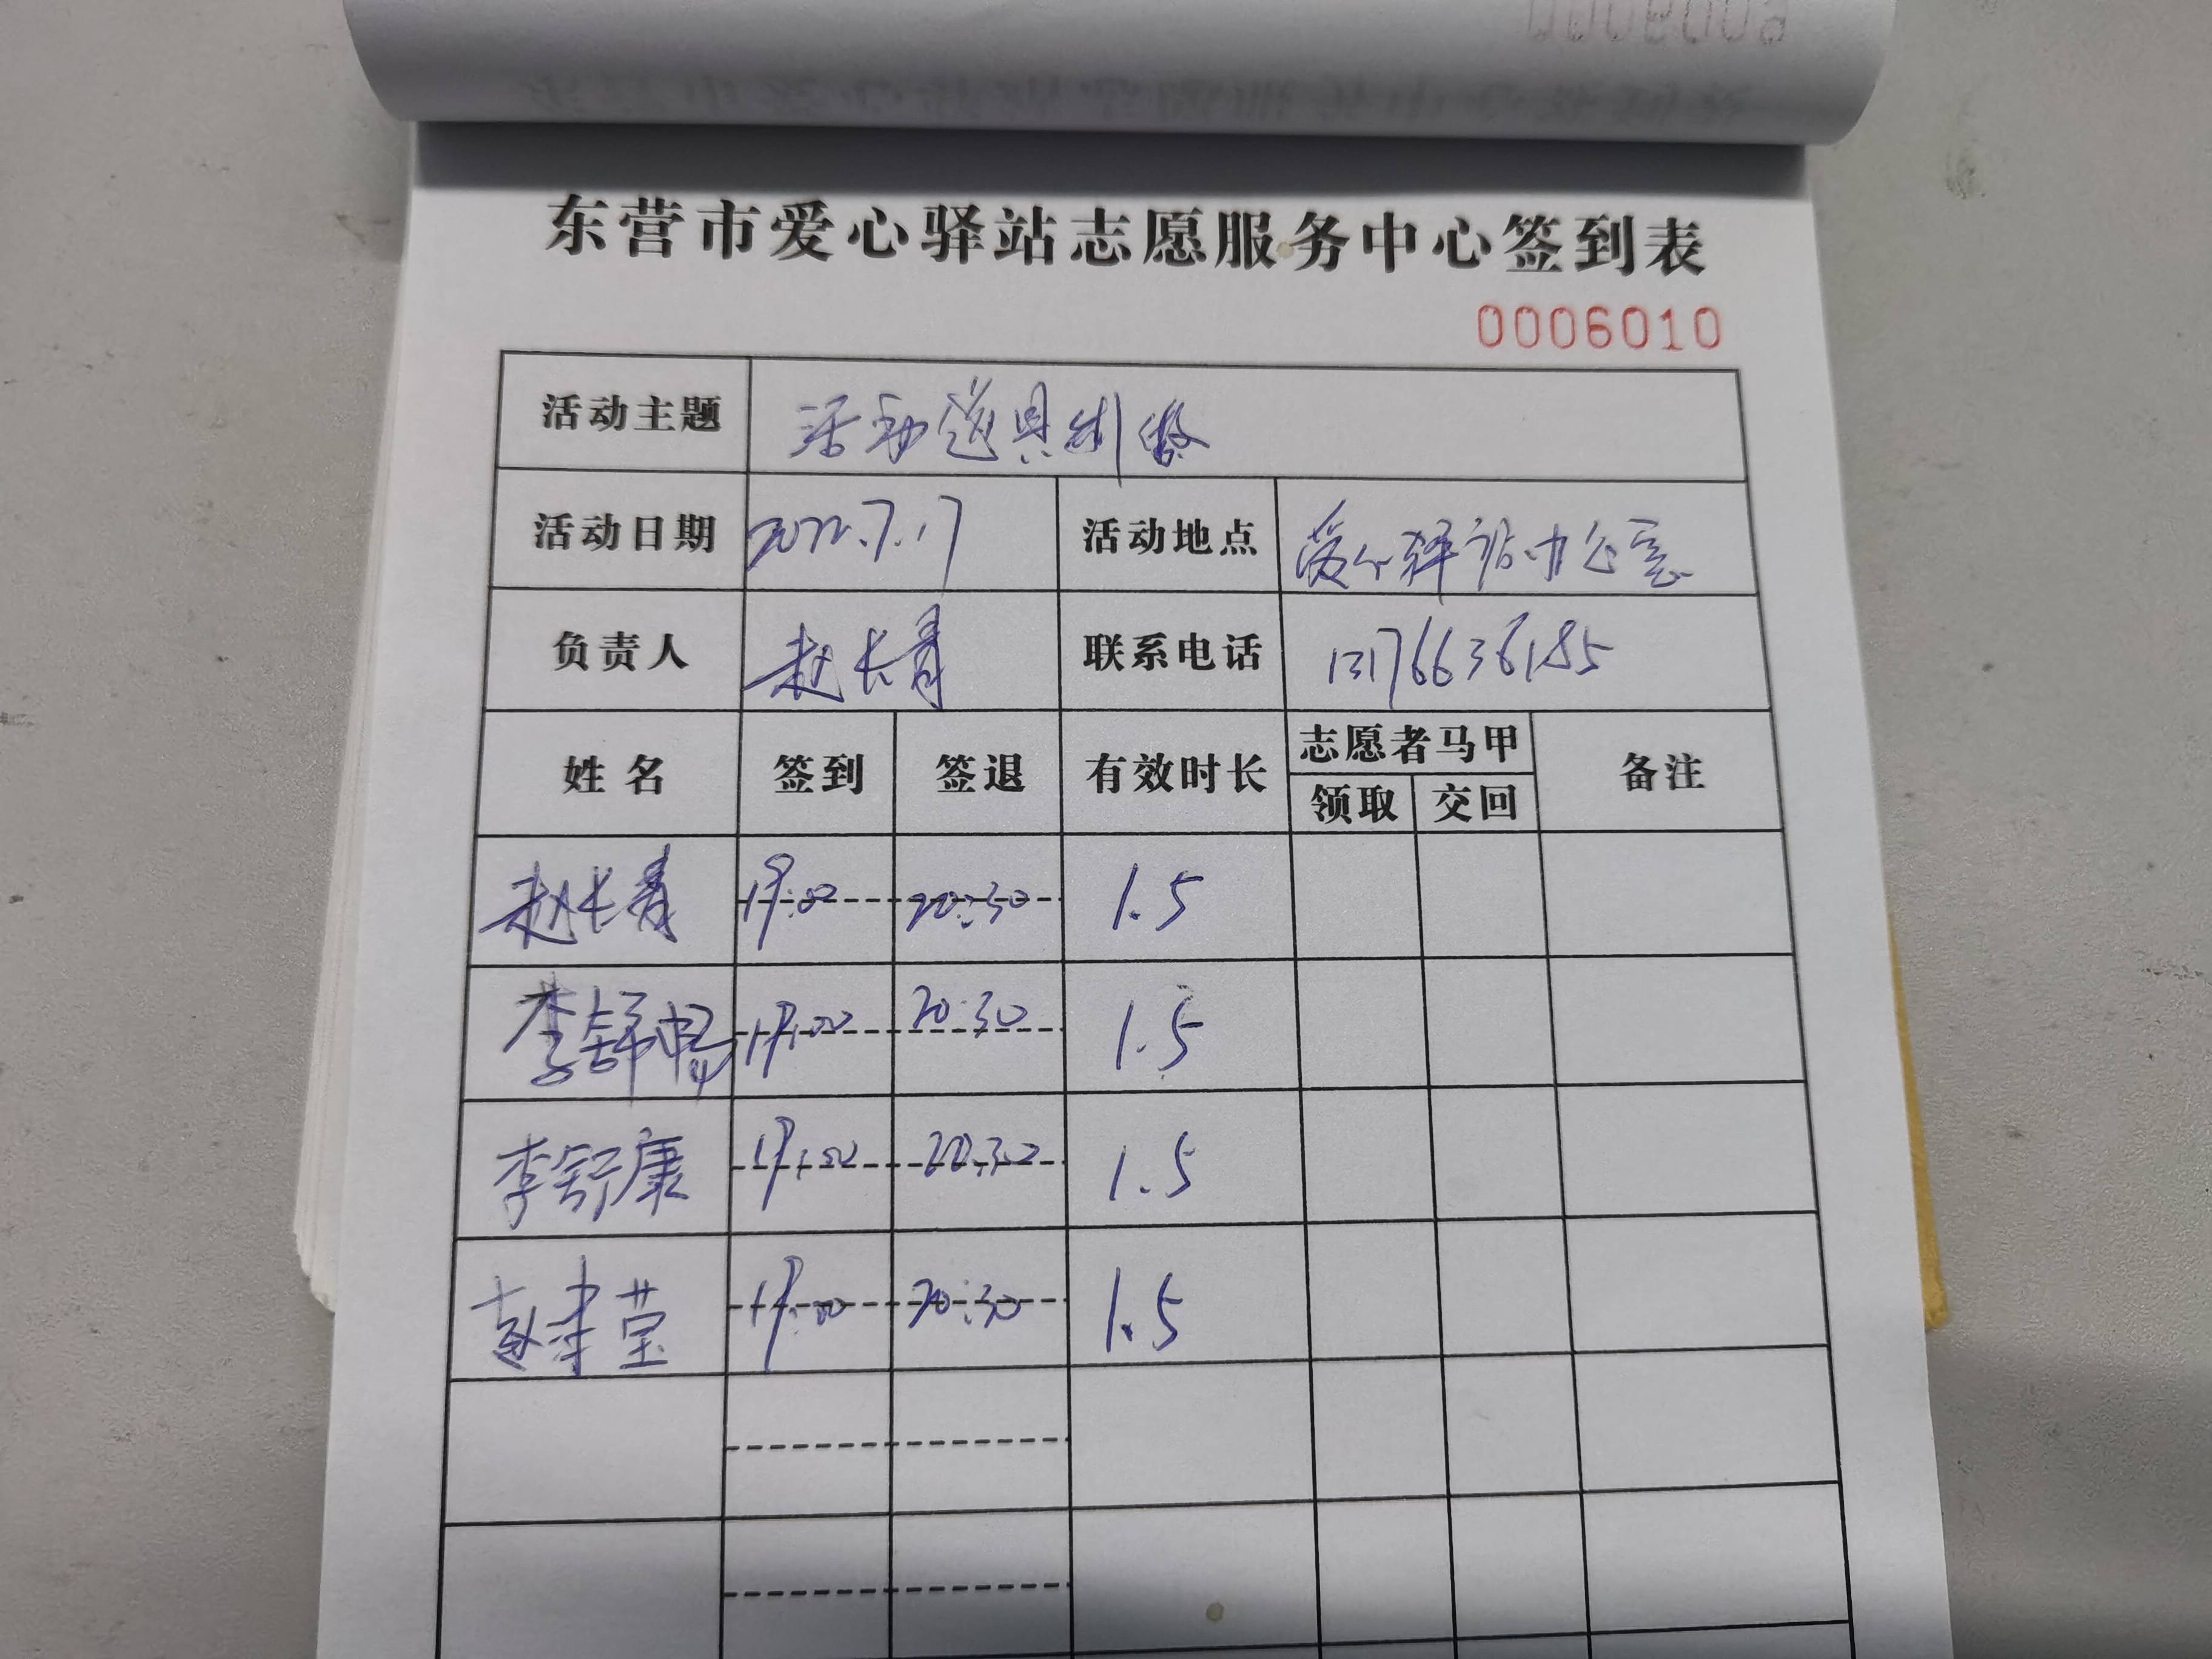 东营市爱心驿站志愿服务中心签到表
0006010
活动主题 活动道具制做
活动日期 2022.7.17 活动地点 爱心驿站办公室
负责人 赵长青 联系电话 13176636185
姓名 签到 签退 有效时长 志愿者马甲 备注
领取 交回
赵长青 19:00 20:30 1.5
李舒畅 19:00 20:30 1.5
李舒康 19:00 20:30 1.5
19:00 20:30 1.5